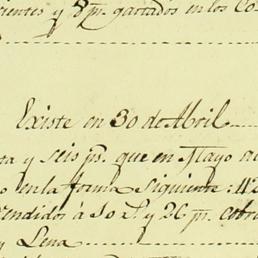 cientes y 8 p.s gastados en los Co
Existe en 30 de Abril
ta y seis p.s que en Mayo
o en la forma siguiente: 42
vendidos á 10 p.s y 26 p.s cobr
y Lena